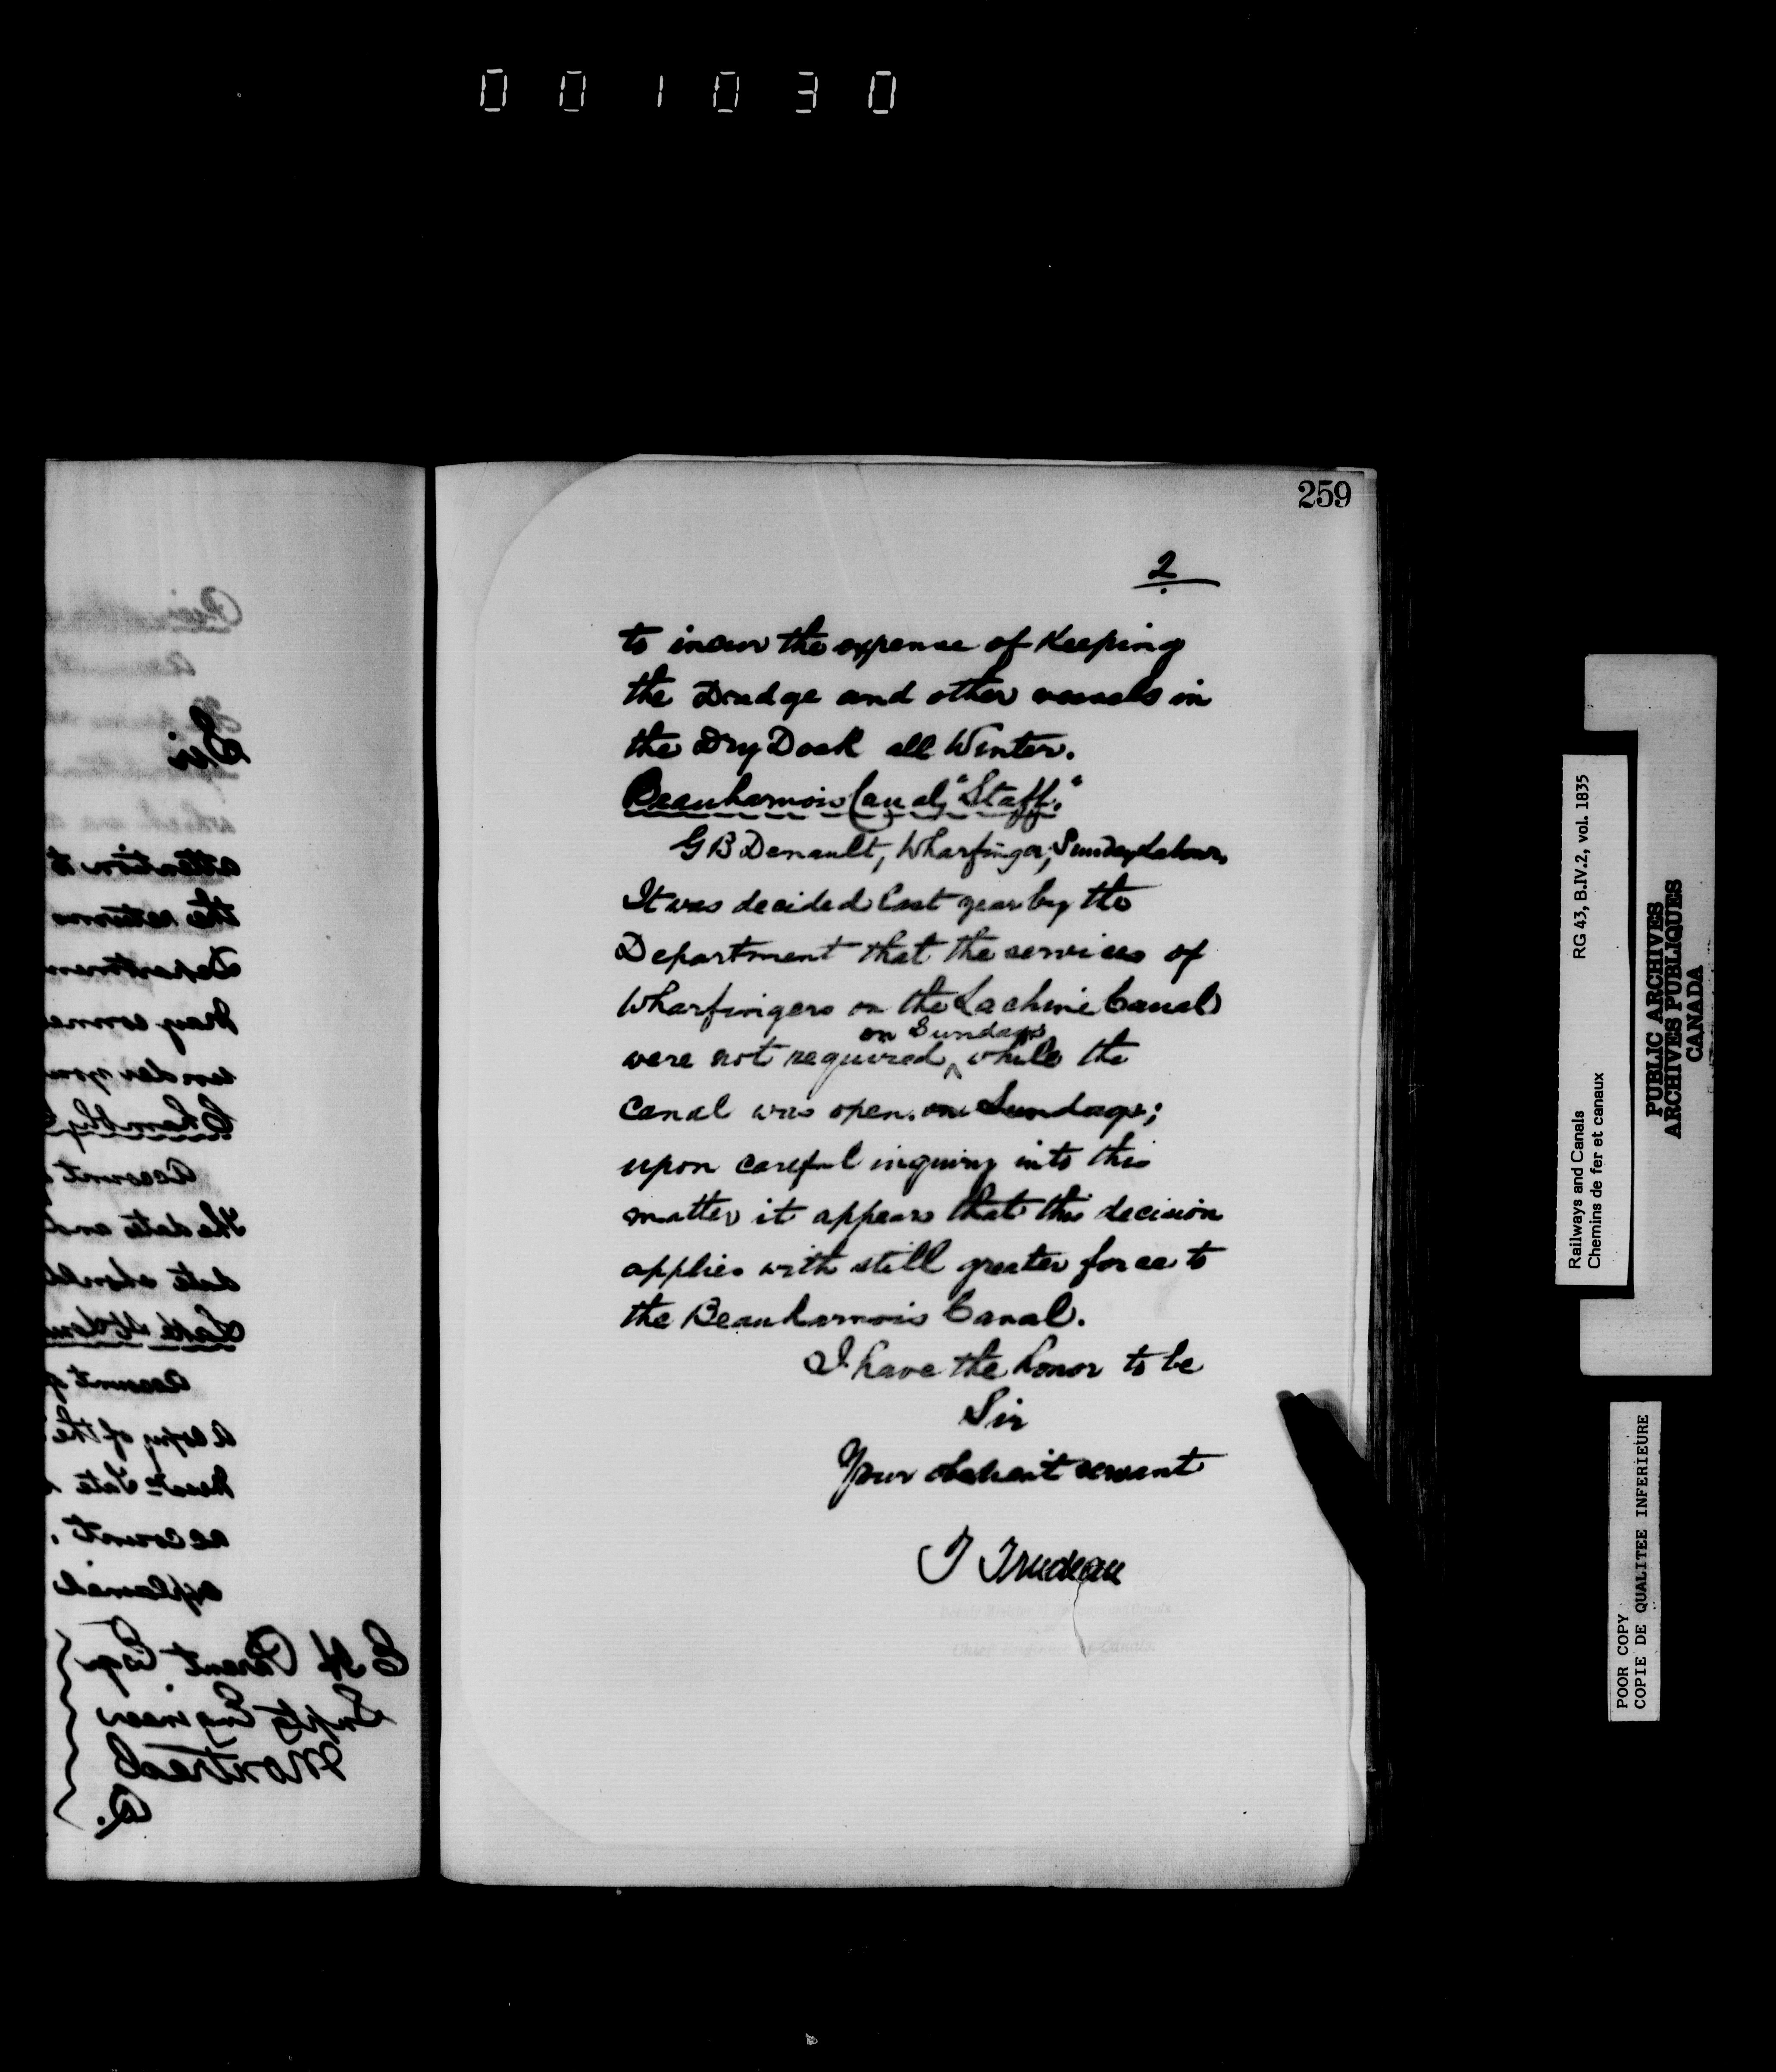 001030
259
2
to incur the expense of Keeping
the Dredge and other vessels in
the Dry Dock all Winter.
Beauharnois Canal, "Staff."
G B Denault, Wharfinger, Sunday Labour,
It was decided last year by the
Department that the services of
Wharfingers on the Lachine Canal
on Sundays
were not required, while the
Canal was open. on Sundays;
upon careful inquiry into this
matter it appears that this decision
applies with still greater force to
the Beauharnois Canal.
I have the honor to be
Sir
Your obedient servant
T Trudeau
Deputy Minister of Railways and Canals
Chief Engineer of Canals.
Sir
attention to
the returns
Departmen
May connec
under your
Chambly
Account
The date and
date should
Lake St Lou
Account
a copy of the
Tate
account,
explained
E H Parent Esqr
Supt'g Engineer
Montreal
Q.
Railways and Canals RG 43, B.IV.2, vol. 1835
Chemins de fer et canaux
PUBLIC ARCHIVES
ARCHIVES PUBLIQUES
CANADA
POOR COPY
COPIE DE QUALITEE INFERIEURE